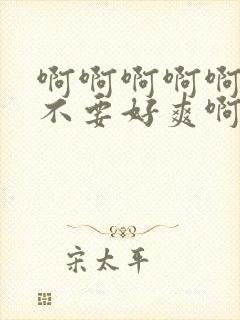 啊啊啊啊啊
不要好爽啊
宋太平